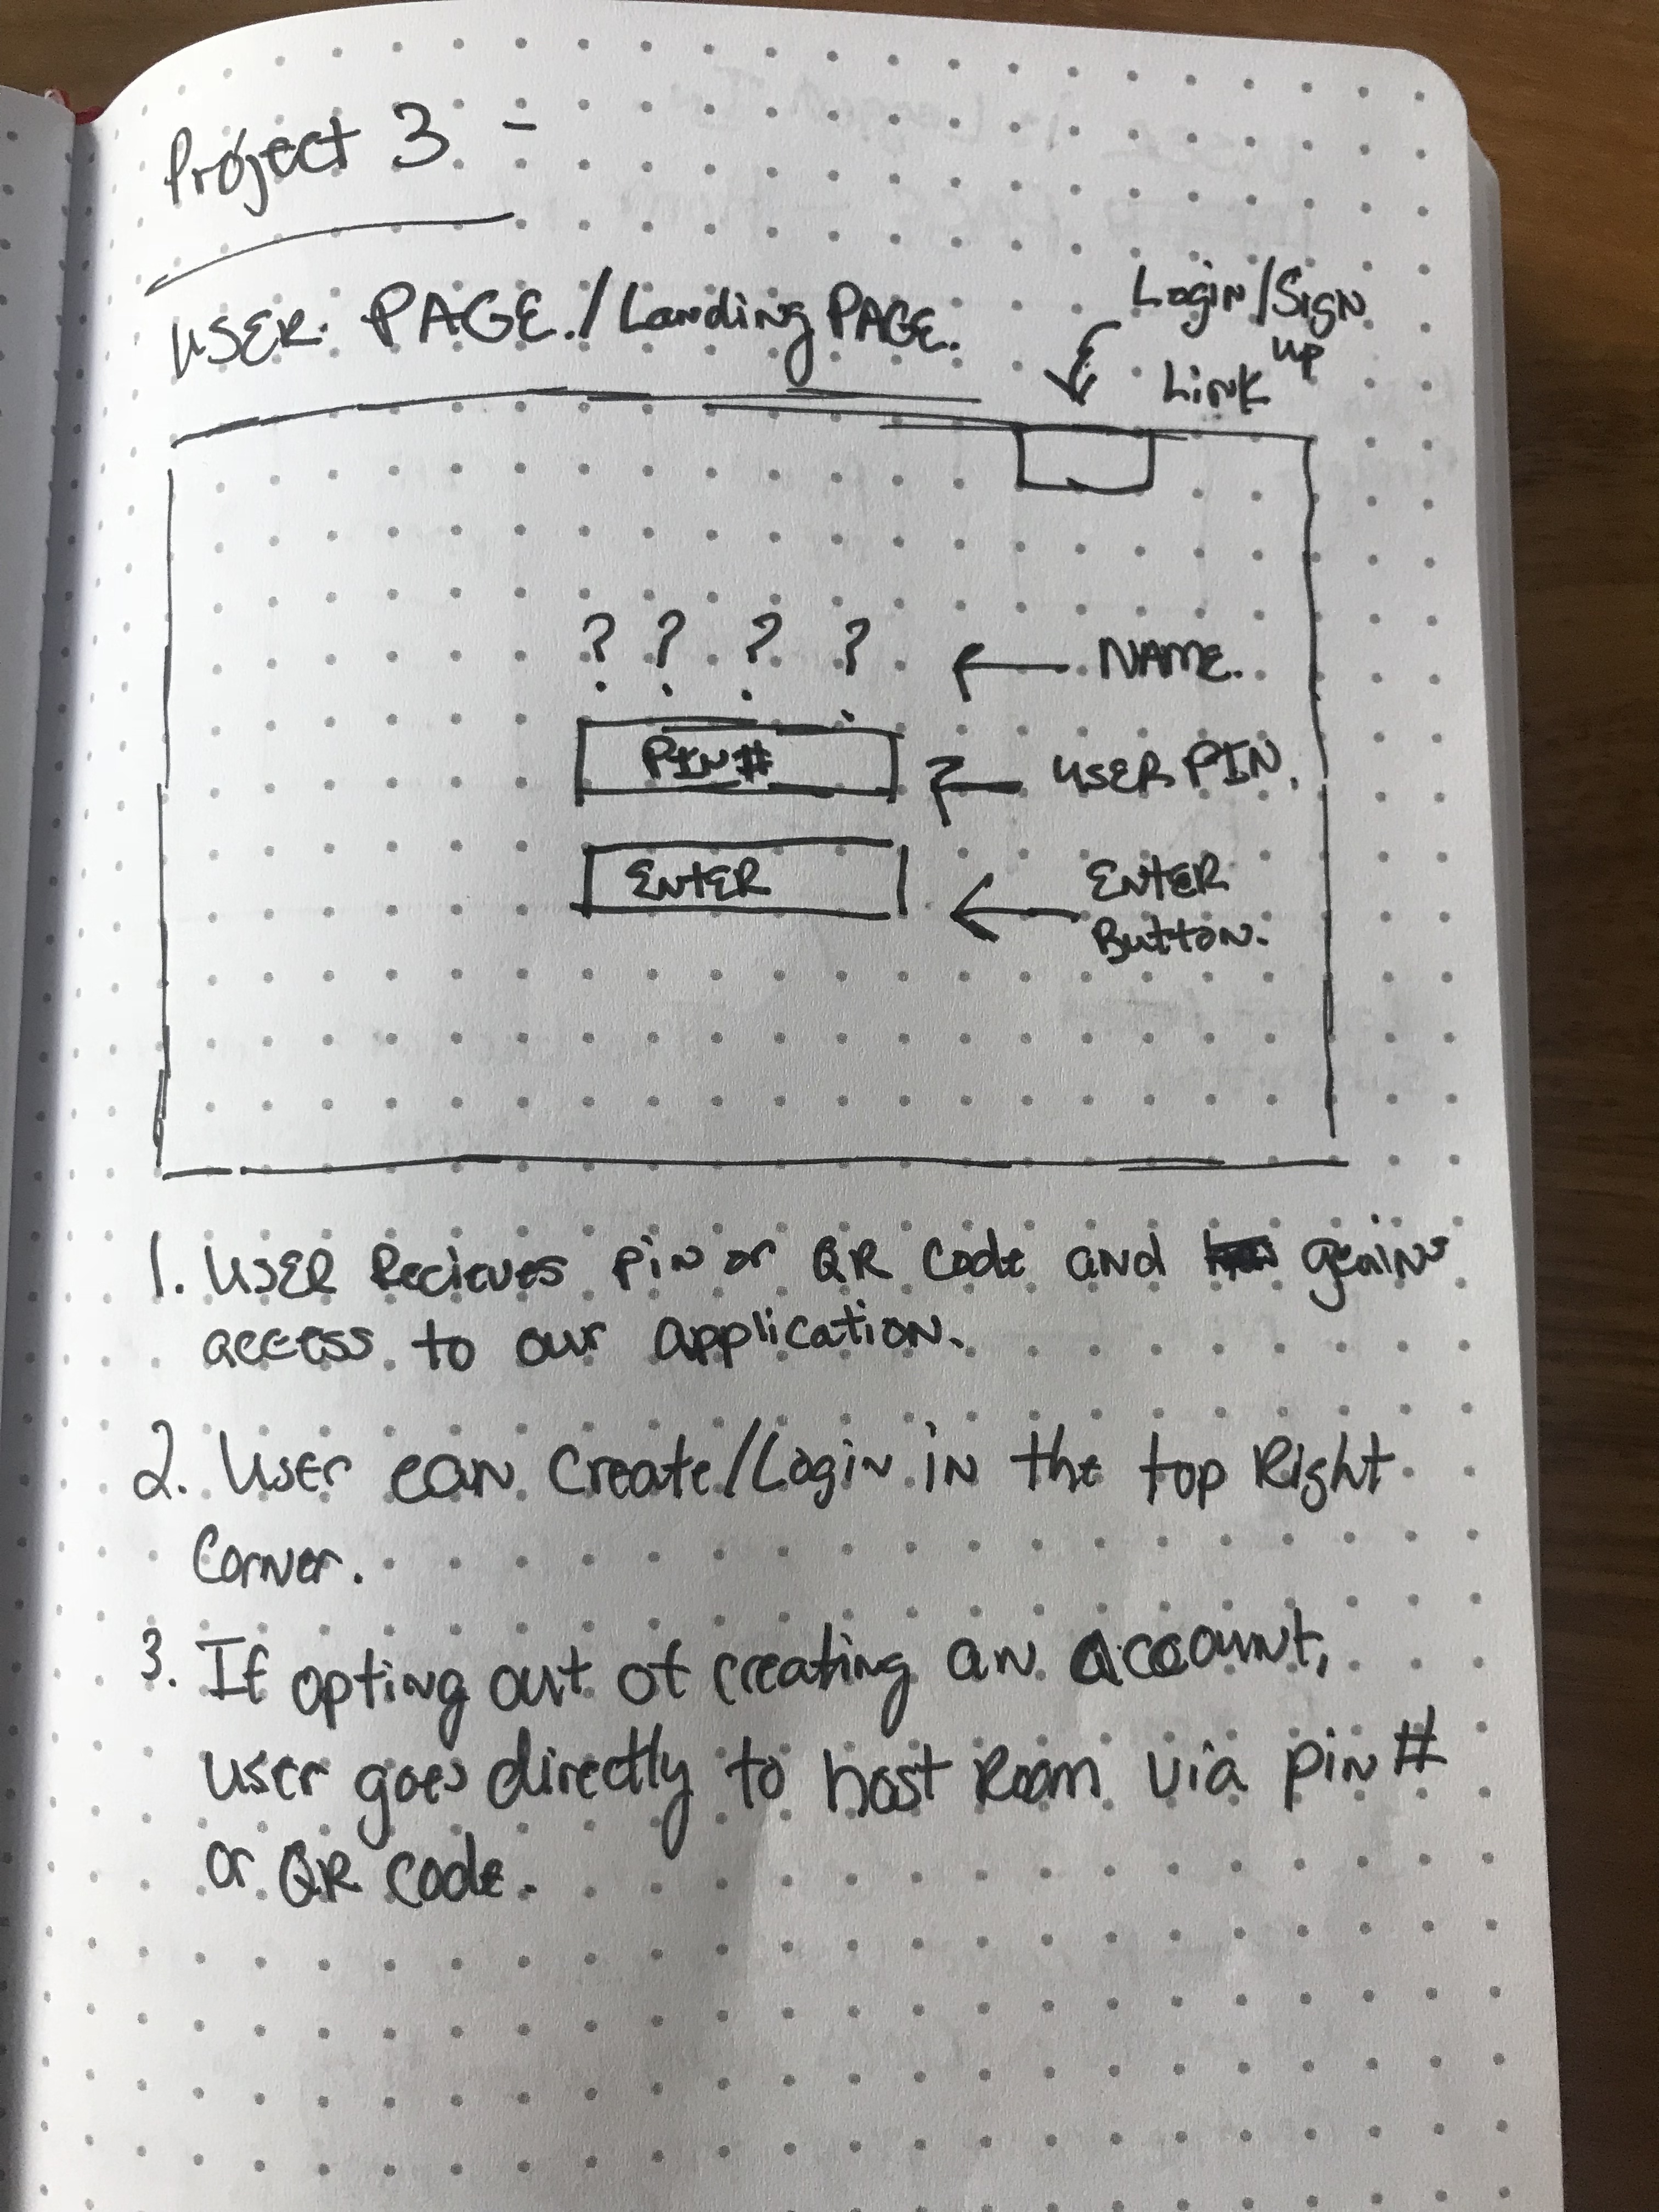 Project 3 -
USER PAGE./Landing PAGE.
Login/Sign
up
Link
? ? ? ? NAME.
PIN# USER PIN.
ENTER ENTER
Button.
1. USER Recieves pin or QR Code and gains
access to our application.
2. User can Create/Login in the top Right
Corner.
3. If opting out of creating an account,
user goes directly to host Room via pin #
or QR code.